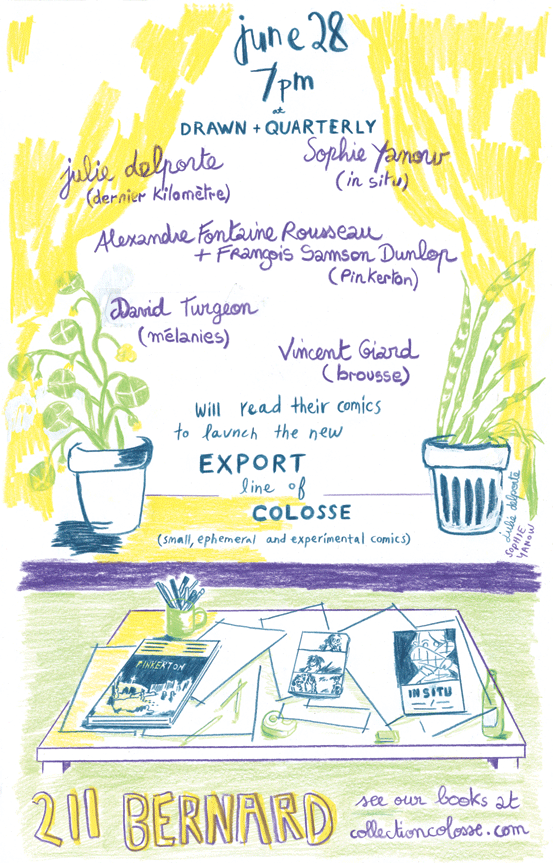 june 28
7pm
at
DRAWN + QUARTERLY
julie delporte
(dernier kilomètre)
Sophie Yanow
(in situ)
Alexandre Fontaine Rousseau
+ François Samson Dunlop
(Pinkerton)
David Turgeon
(mélanies)
Vincent Giard
(brousse)
Will read their comics
to launch the new
EXPORT
line of
COLOSSE
(small, ephemeral and experimental comics)
julie delporte
SOPHIE
YANOW
PINKERTON
IN SITU
211 BERNARD
see our books at
collectioncolosse.com